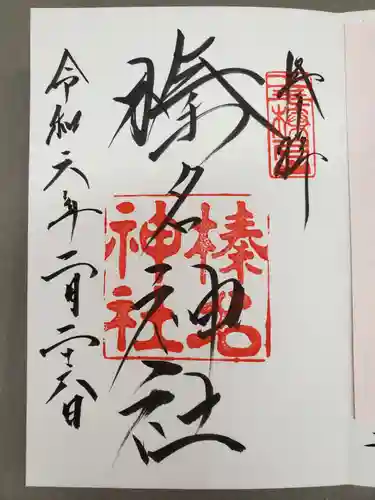 奉拝
榛名神社
榛名
神社
令和六年二月二十六日